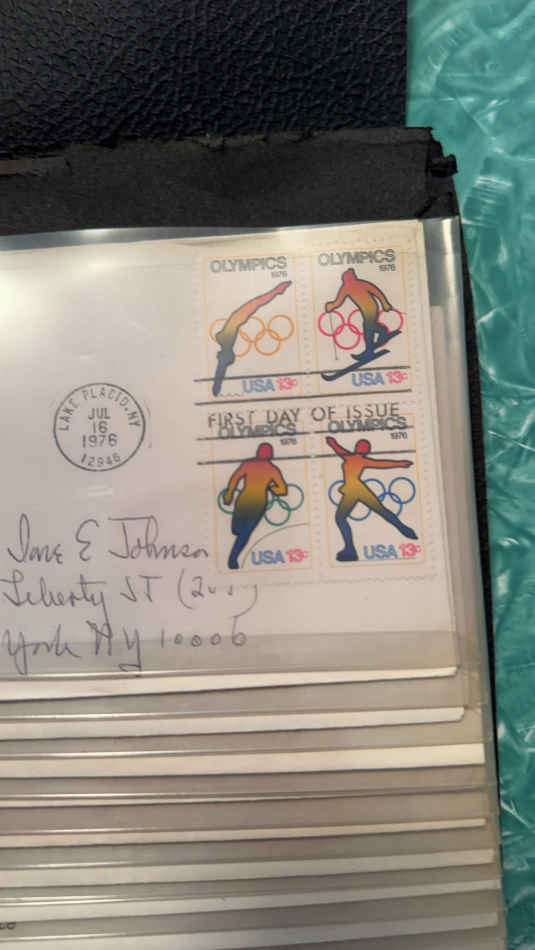 OLYMPICS
1976
USA 13c
OLYMPICS
1976
USA 13c
LAKE PLACID, NY
JUL
16
1976
12946
FIRST DAY OF ISSUE
OLYMPICS
1976
USA 13c
OLYMPICS
1976
USA 13c
E Johnson
Liberty ST
York NY 10006